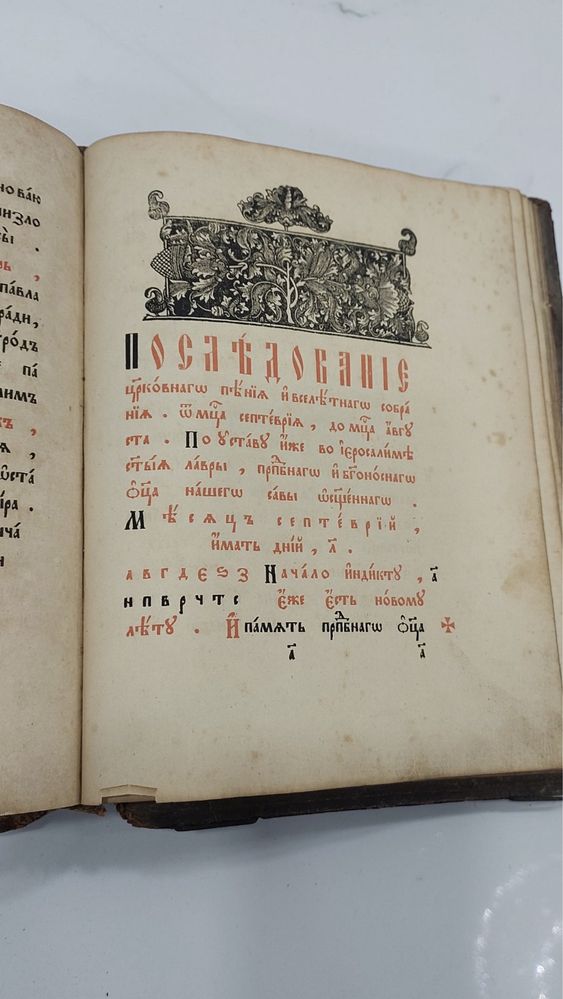 но ва́ю
низло
сы̀ .
рь ,
па́вла
ра́ди,
ро́дъ
е па
лимъ
ъ ,
я ,
ѡ҆ста
і́ра .
и́ча
и
Послѣ́дованіе
црко́внагѡ пѣ́нїѧ и҆ вселѣ́тнагѡ собра
нїѧ . ѿ мц҃а септе́врїѧ , до мц҃а а҆́вгу
ста . По уста́ву и҆́же во і҆еросали́мѣ
ст҃ы́ѧ ла́вры , прпⷣбнагѡ и҆ бг҃оно́снагѡ
ѻ҆ц҃а̀ на́шегѡ са́вы ѡ҆сщ҃е́ннагѡ .
Мѣ́сѧцъ септе́врїй ,
и҆́мать дні́й , л҃ .
а в г д є ѕ з Нача́ло и҆нди́кту , а҃
н п в р ч т с є҆́же є҆́сть но́вому
лѣ́ту . И҆ па́мѧть прпⷣбнагѡ ѻ҆ц҃а̀
а҃ а҃